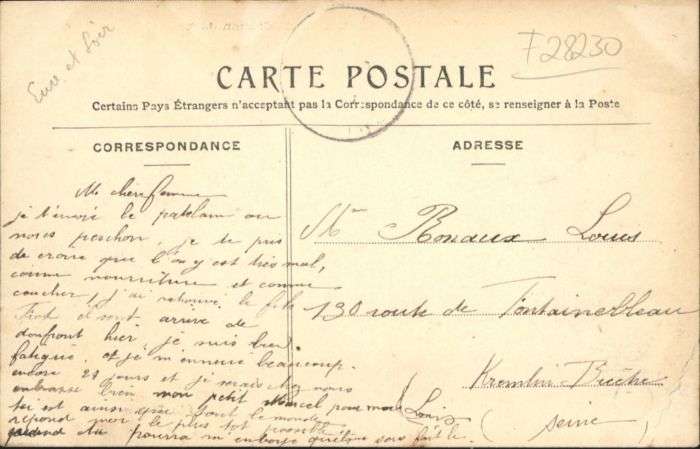 Eure et Loir
F 28230
CARTE POSTALE
Certains Pays Étrangers n'acceptent pas la Correspondance de ce côté, se renseigner à la Poste
CORRESPONDANCE
Ma chere femme
je t'envoi le patelam ou
nous peschon, je te pris
de croire que l'on y est très mal,
comme nourriture et comme
coucher, j'ai retrouvé le fils
il sont arrive de
domfront hier, je suis bien
fatigué, et je m'ennuie beaucoup.
encore 21 jours et je serais chez nous
embrasse bien mon petit Marcel pour moi
toi est ainsi que tout le monde
répond moi le plus tot possible
quand tu pourra m'
Louis
ADRESSE
Mr Ronaux Louis
130 route de Fontainebleau
Kremlin-Bicêtre
(Seine)